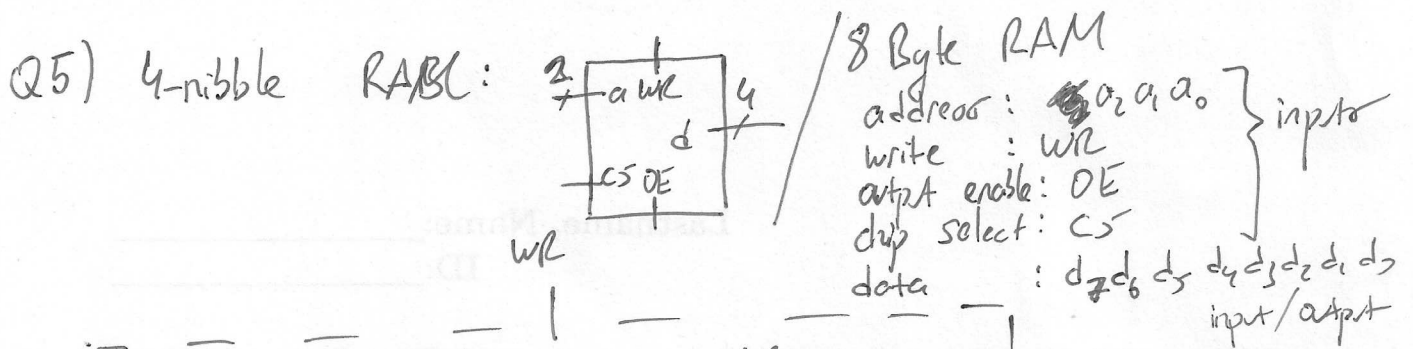 Q5) 4-nibble RABL:
2
a WR
4
d
CS OE
WR
8 Byte RAM
address : a2 a1 a0 } inputs
write : WR
output enable: OE
chip select: CS
data : d7 d6 d5 d4 d3 d2 d1 d0
input/output
Lastname, Name:
ID: